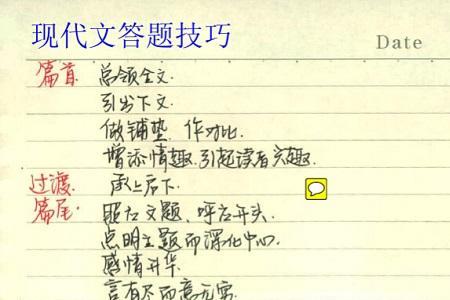 现代文答题技巧
Date
篇首 总领全文.
引出下文.
做铺垫 作对比.
增添情趣.引起读者兴趣.
过渡. 承上启下.
篇尾. 照应文题、呼应开头.
点明主题而深化中心.
感情升华.
言有尽而意无穷.